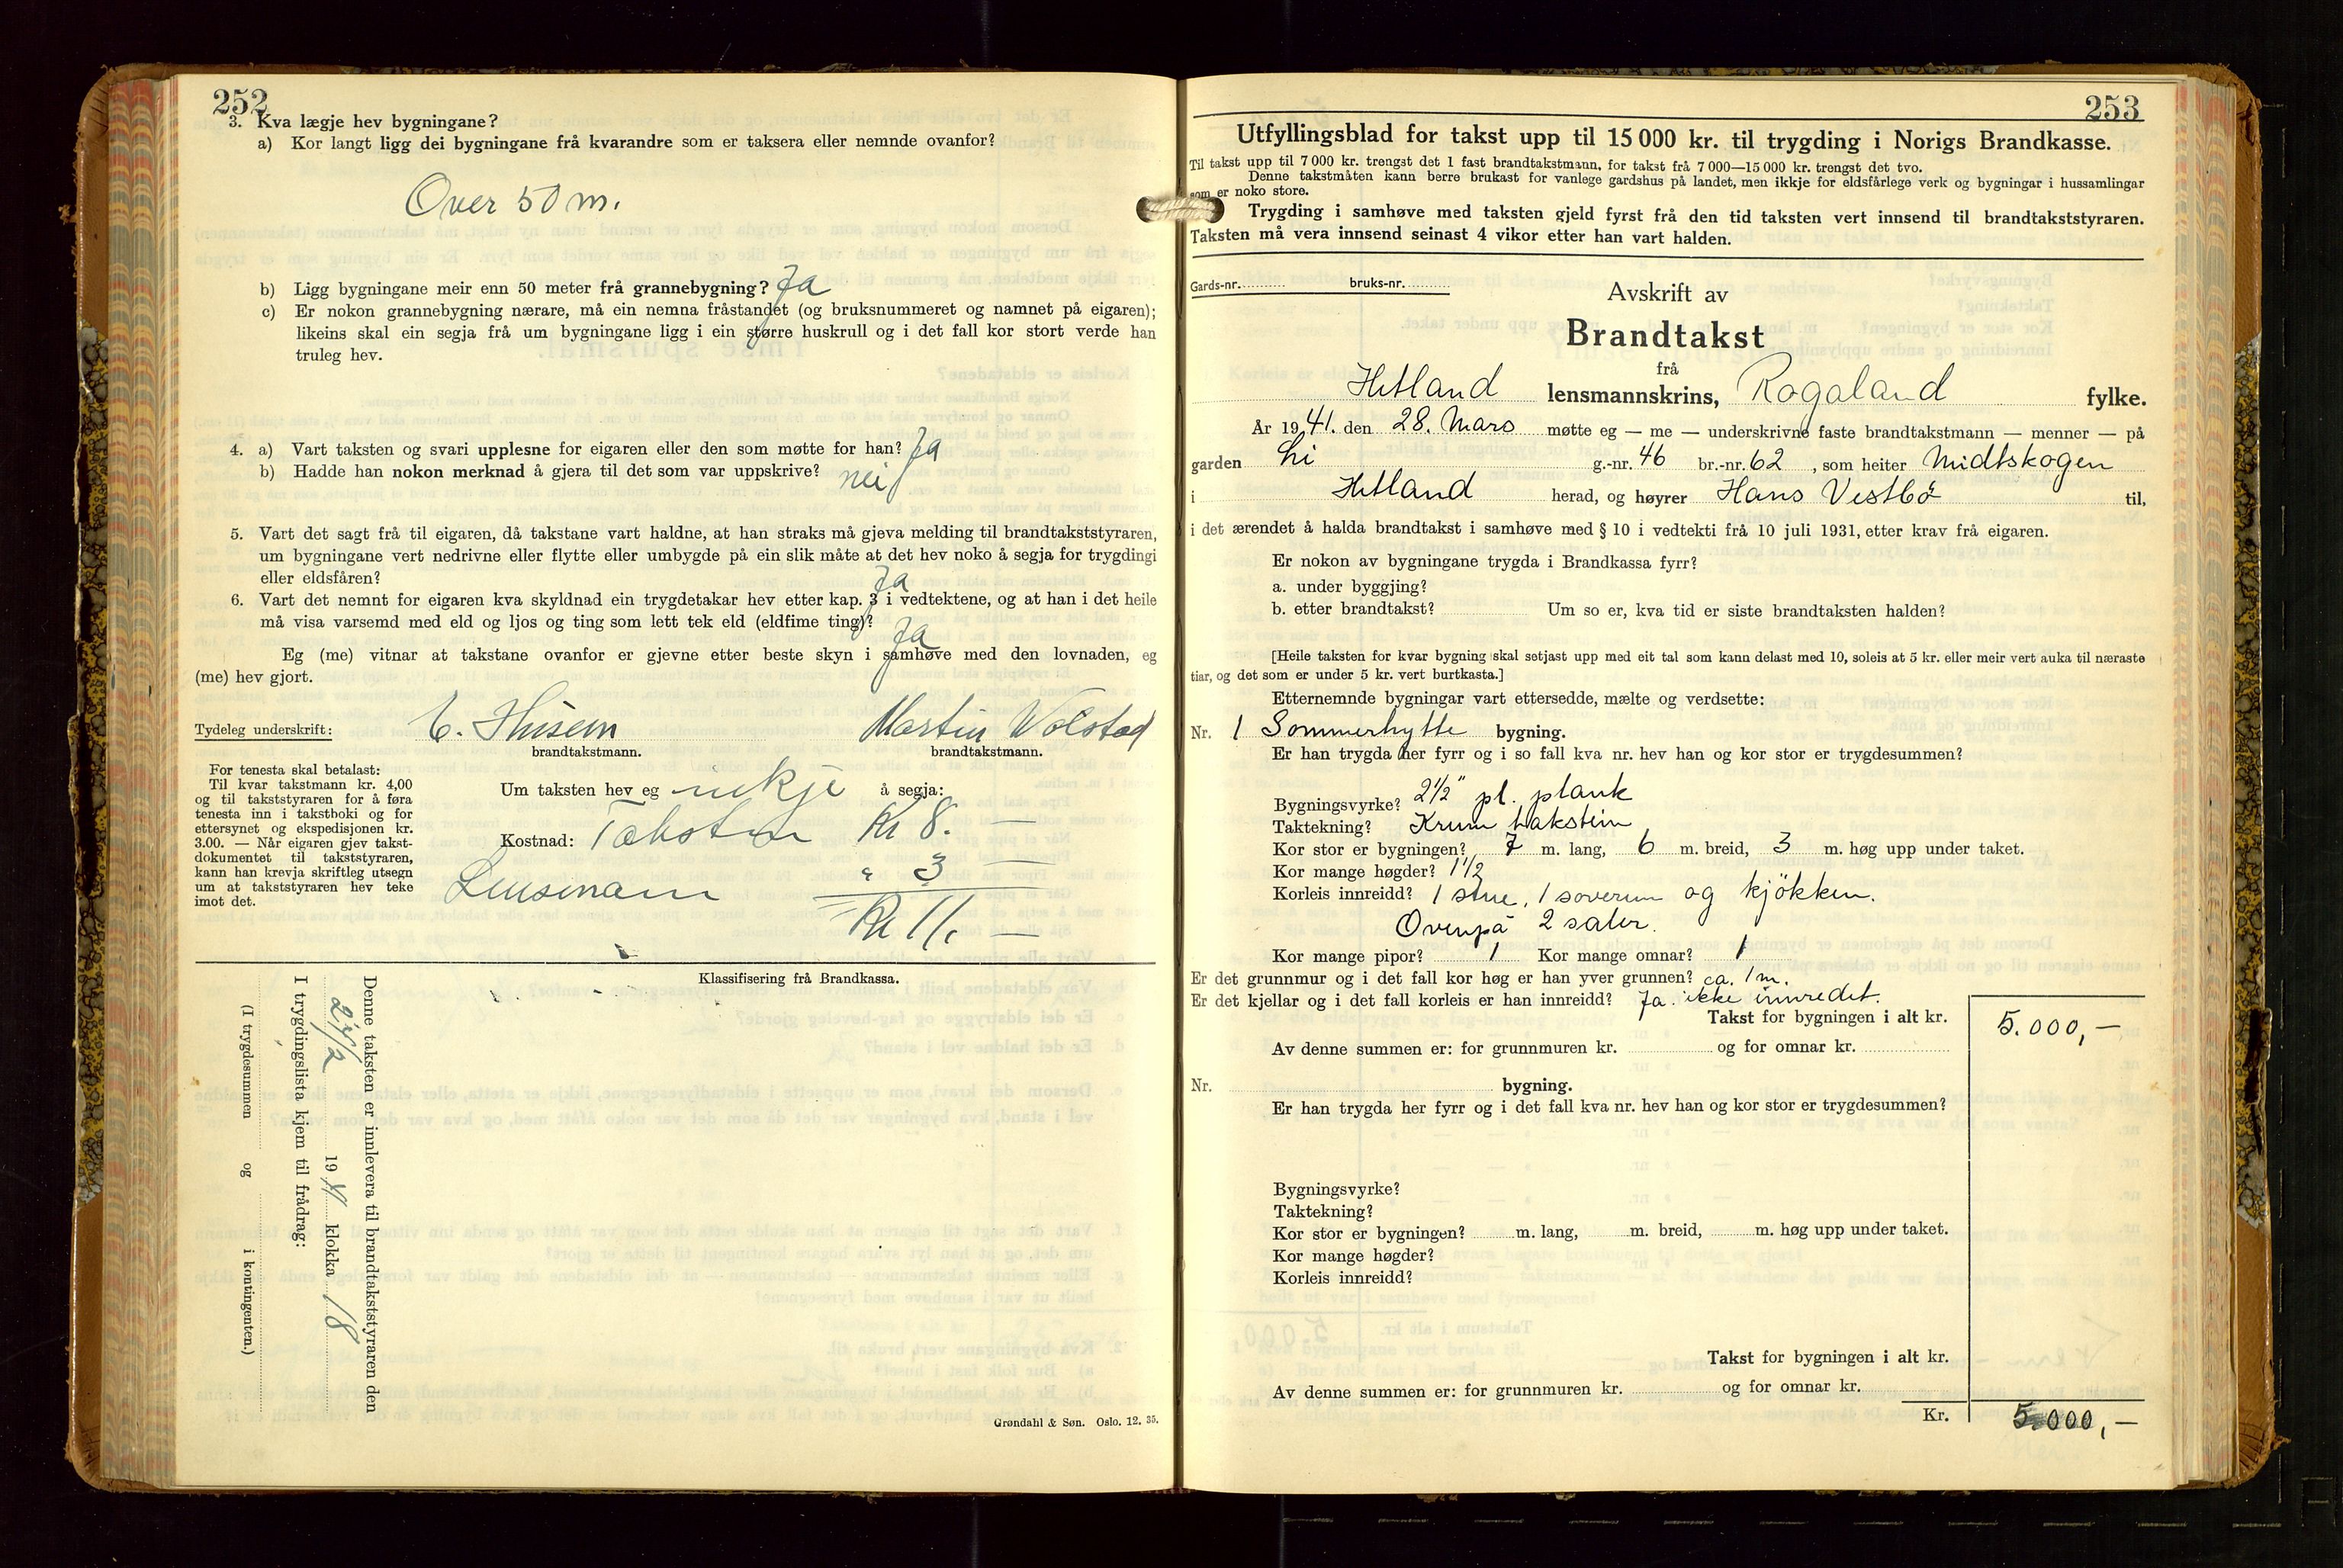 252
3. Kva lægje hev bygningane?
a) Kor langt ligg dei bygningane frå kvarandre som er taksera eller nemnde ovanfor?
Over 50 m.
b) Ligg bygningane meir enn 50 meter frå grannebygning? Ja
c) Er nokon grannebygning nærare, må ein nemna fråstandet (og bruksnummeret og namnet på eigaren);
likeins skal ein segja frå um bygningane ligg i ein større huskrull og i det fall kor stort verde han
truleg hev.
4. a) Vart taksten og svari upplesne for eigaren eller den som møtte for han? Ja
b) Hadde han nokon merknad å gjera til det som var uppskrive? nei
5. Vart det sagt frå til eigaren, då takstane vart haldne, at han straks må gjeva melding til brandtakststyraren,
um bygningane vert nedrivne eller flytte eller umbygde på ein slik måte at det hev noko å segja for trygdingi
eller eldsfåren? Ja
6. Vart det nemnt for eigaren kva skyldnad ein trygdetakar hev etter kap. 3 i vedtektene, og at han i det heile
må visa varsemd med eld og ljos og ting som lett tek eld (eldfime ting)? Ja
Eg (me) vitnar at takstane ovanfor er gjevne etter beste skyn i samhøve med den lovnaden, eg
(me) hev gjort.
Tydeleg underskrift: Martin Wolstad
brandtakstmann. brandtakstmann.
For tenesta skal betalast:
Til kvar takstmann kr. 4,00
og til takststyraren for å føra
tenesta inn i takstboki og for
ettersynet og ekspedisjonen kr.
3.00. — Når eigaren gjev takst-
dokumentet til takststyraren,
kann han krevja skriftleg utsegn
um at takststyraren hev teke
imot det.
Um taksten hev eg inkje å segja:
Kostnad: Taksten Kr 8. —
Lensmann " 3 —
Kr 11. —
Klassifisering frå Brandkassa.
Denne taksten er innlevera til brandtakststyraren den
19 41 klokka 18
I trygdingslista kjem til frådrag:
(I trygdesummen og i kontingenten.)
Grøndahl & Søn. Oslo. 12. 35.
253
Utfyllingsblad for takst upp til 15 000 kr. til trygding i Norigs Brandkasse.
Til takst upp til 7 000 kr. trengst det 1 fast brandtakstmann, for takst frå 7 000—15 000 kr. trengst det tvo.
Denne takstmåten kann berre brukast for vanlege gardshus på landet, men ikkje for eldsfårlege verk og bygningar i hussamlingar
som er noko store.
Trygding i samhøve med taksten gjeld fyrst frå den tid taksten vert innsend til brandtakststyraren.
Taksten må vera innsend seinast 4 vikor etter han vart halden.
Gards-nr. bruks-nr.
Avskrift av
Brandtakst
frå
Hetland lensmannskrins, Rogaland fylke.
År 1941. den 28. Mars møtte eg — me — underskrivne faste brandtakstmann — menner — på
garden Li g.-nr. 46 br.-nr. 62, som heiter Midtskogen
i Hetland herad, og høyrer Hans Vestbö til,
i det ærendet å halda brandtakst i samhøve med § 10 i vedtekti frå 10 juli 1931, etter krav frå eigaren.
Er nokon av bygningane trygda i Brandkassa fyrr?
a. under byggjing?
b. etter brandtakst? Um so er, kva tid er siste brandtaksten halden?
[Heile taksten for kvar bygning skal setjast upp med eit tal som kann delast med 10, soleis at 5 kr. eller meir vert auka til næraste
tiar, og det som er under 5 kr. vert burtkasta.]
Etternemnde bygningar vart ettersedde, mælte og verdsette:
Nr. 1 Sommerhytte bygning.
Er han trygda her fyrr og i so fall kva nr. hev han og kor stor er trygdesummen?
Bygningsvyrke? 2½" pl. plank
Taktekning? Krum takstein
Kor stor er bygningen? 7 m. lang, 6 m. breid, 3 m. høg upp under taket.
Kor mange høgder? 1½
Korleis innreidd? 1 stue, 1 soverum og kjökken.
Ovenpå 2 saler.
Kor mange pipor? 1 Kor mange omnar? 1
Er det grunnmur og i det fall kor høg er han yver grunnen? ca. 1 m.
Er det kjellar og i det fall korleis er han innreidd? Ja. ikke innredet.
Takst for bygningen i alt kr. 5.000,—
Av denne summen er: for grunnmuren kr. og for omnar kr.
Nr. bygning.
Er han trygda her fyrr og i det fall kva nr. hev han og kor stor er trygdesummen?
Bygningsvyrke?
Taktekning?
Kor stor er bygningen? m. lang, m. breid, m. høg upp under taket.
Kor mange høgder?
Korleis innreidd?
Takst for bygningen i alt kr.
Av denne summen er: for grunnmuren kr. og for omnar kr.
Kr. 5.000,—